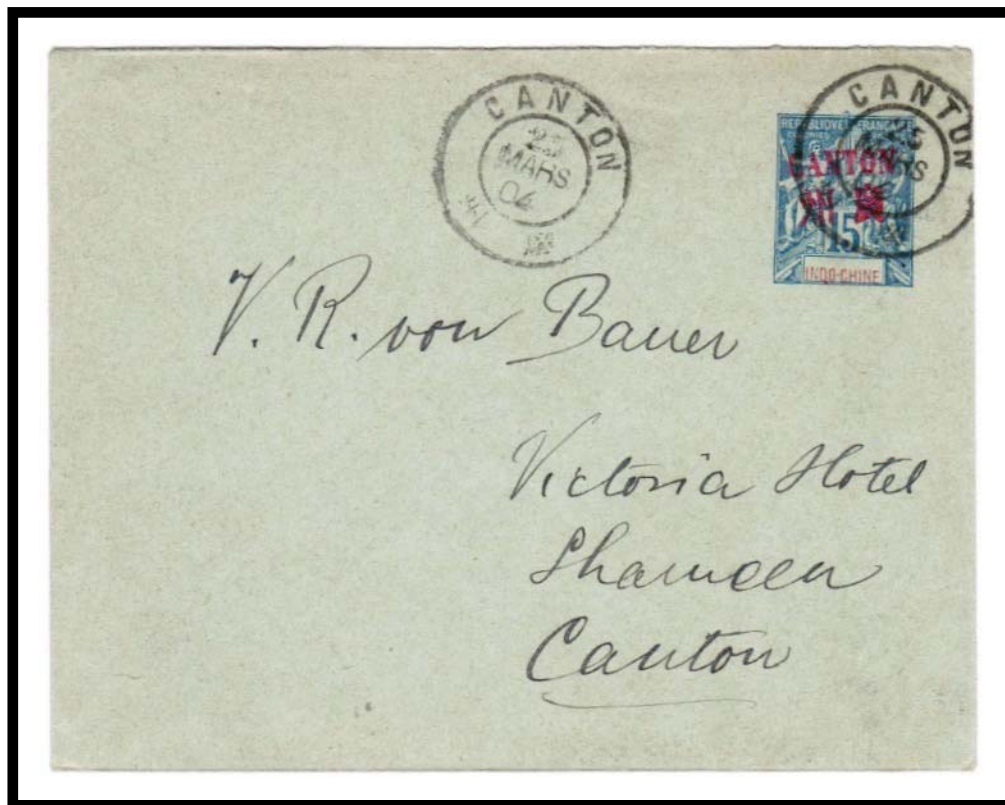 CANTON
25
MARS
04
CANTON
25
MARS
REPUBLIQUE FRANCAISE
COLONIES
CANTON
州
15
INDO-CHINE
V. R. von Bauer
Victoria Hotel
Shameen
Canton